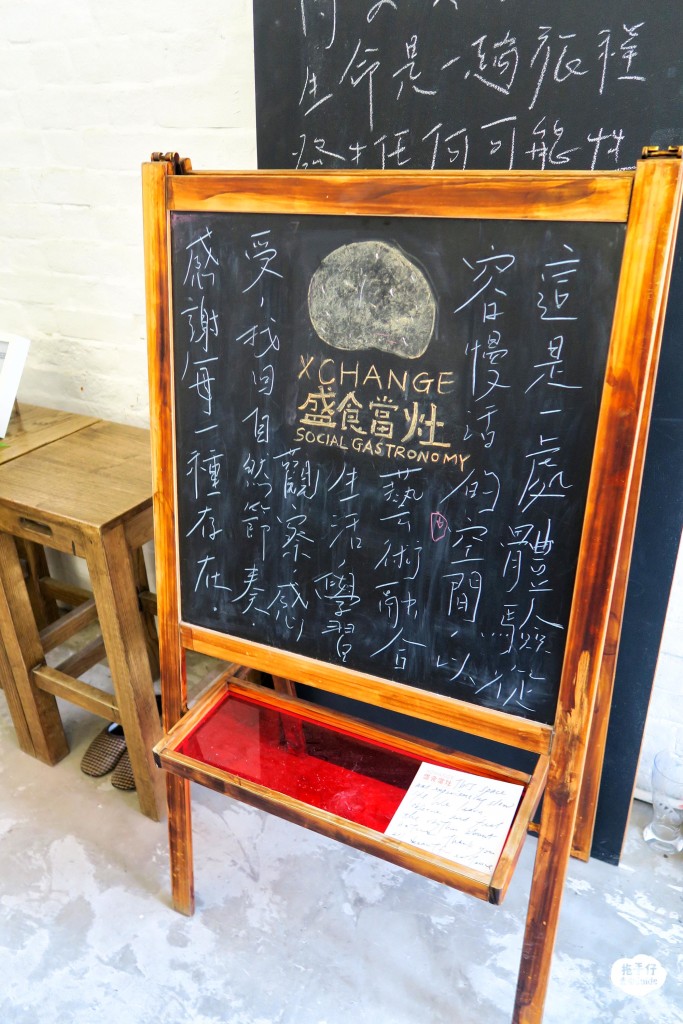 生命是一趟旅程
發生任何可能性
XCHANGE
盛食當灶
SOCIAL GASTRONOMY
這是一處體驗從
容慢活的空間，以
藝術融合
生活，學習
觀察，感
受，找回自然節奏．
感謝每一種存在．
盛食當灶 This space